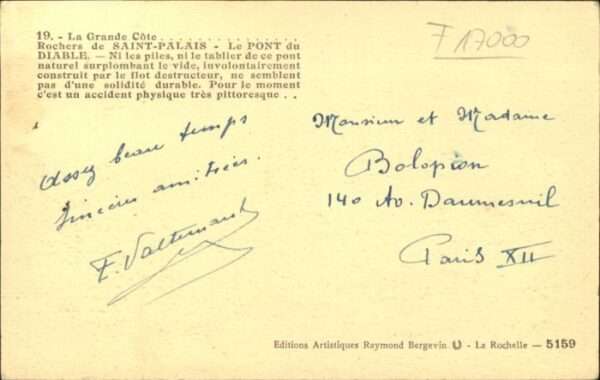 19. - La Grande Côte . . . . . . . . . . . . . . . . .
Rochers de SAINT-PALAIS - Le PONT du
DIABLE. — Ni les piles, ni le tablier de ce pont
naturel surplombant le vide, involontairement
construit par le flot destructeur, ne semblent
pas d'une solidité durable. Pour le moment
c'est un accident physique très pittoresque . .
F 17000
Assez beau temps
Sincères amitiés.
F. Valtemant
Monsieur et Madame
Bolopion
140 Av. Daumesnil
Paris XII
Editions Artistiques Raymond Bergevin - La Rochelle — 5159